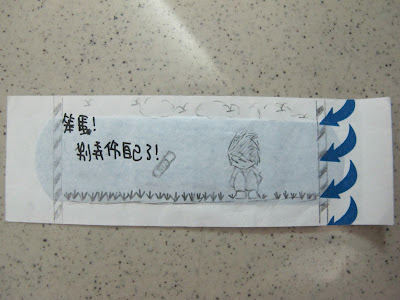 笨蛋!
別弄你自己了!